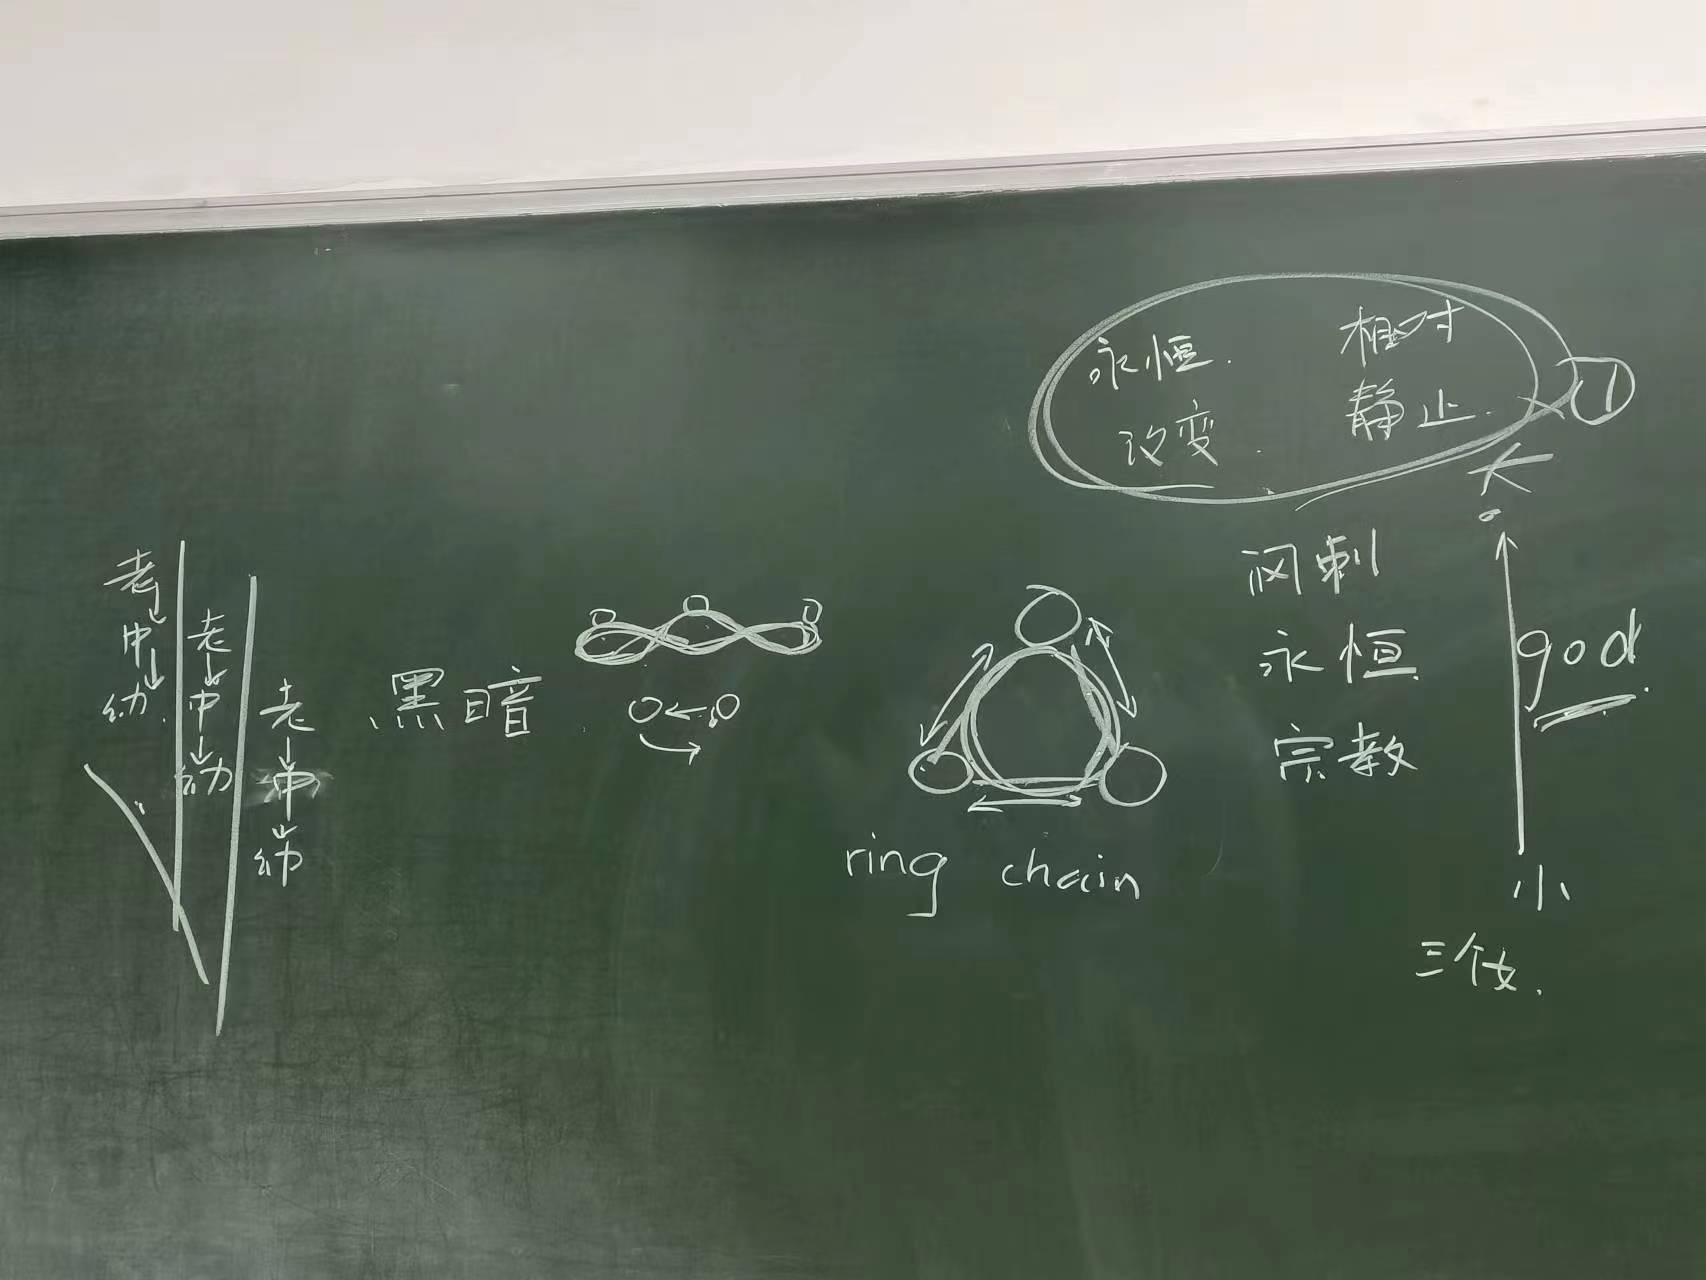 永恒. 相对
改变. 静止.
1
大
讽刺
永恒
宗教
god
小
老
中
幼
老
中
幼
老
中
幼
黑暗
ring chain